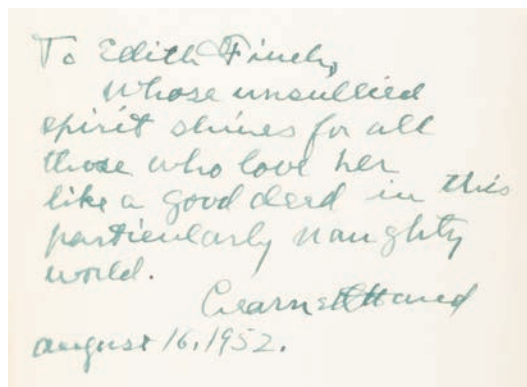 To Edith Finch,
whose unsullied
spirit shines for all
those who love her
like a good deed in this
particularly naughty
world.
Learned Hand
august 16, 1952.